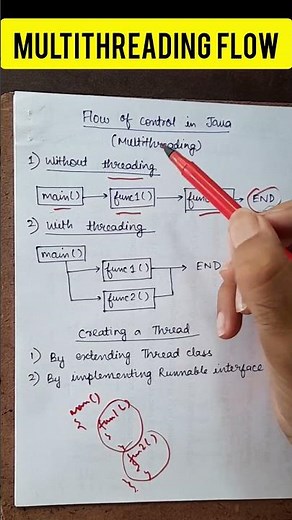 MULTITHREADING FLOW
Flow of control in Java
(Multithreading)
1) Without threading
main() func1() func END
2) With threading
main()
func1() END
func2()
Creating a Thread
1) By extending Thread class
2) By implementing Runnable interface
main()
{
fun1()
{
}
fun2()
{
}
}